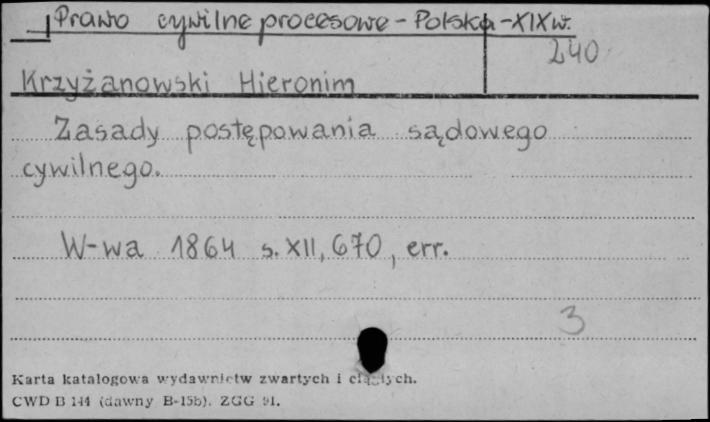 Prawo cywilne procesowe - Polska - XIX w.
240
Krzyżanowski Hieronim
Zasady postępowania sądowego
cywilnego.
W-wa 1864 s. XII, 670, err.
3
Karta katalogowa wydawnictw zwartych i ciągłych.
CWD B 144 (dawny B-15b). ZGG 91.